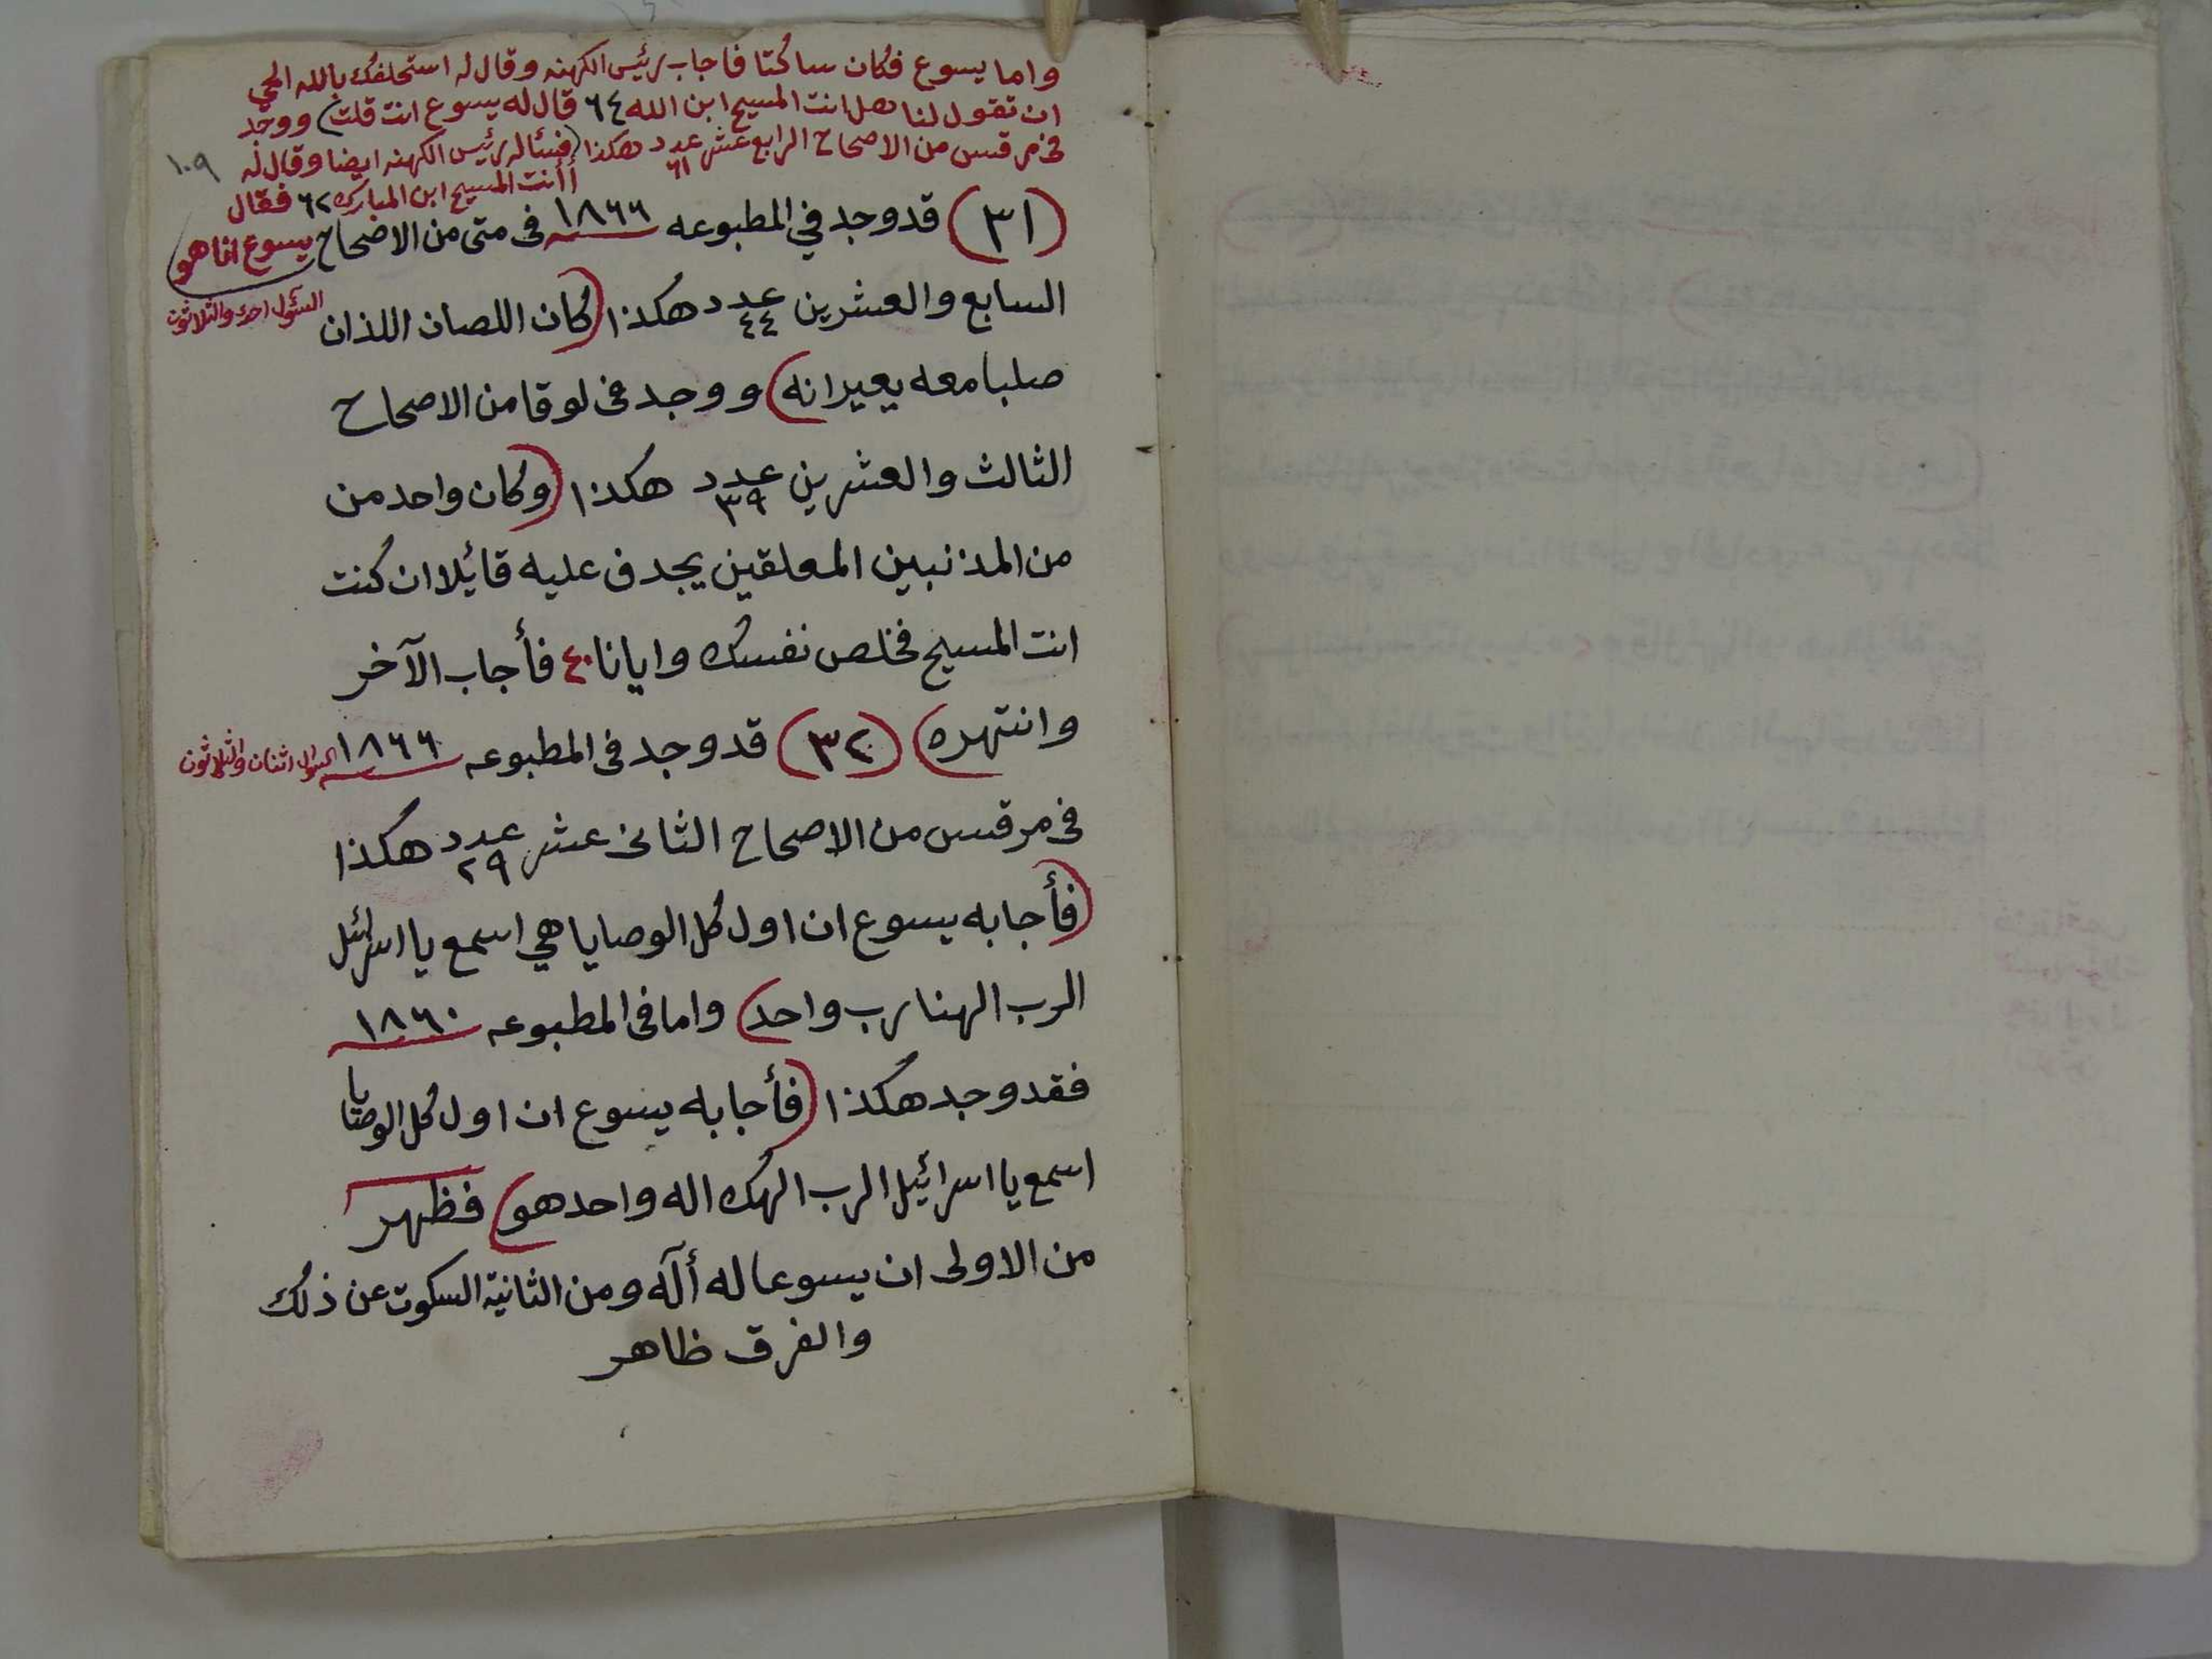 واما يسوع فكان ساكتا فاجاب رئيس الكهنه وقال له استحلفك بالله الحي
ان تقول لنا هل انت المسيح ابن الله ٦٤ قال له يسوع انت قلت) ووجد
فى مرقس من الاصحاح الرابع عشر عدد ٦١ هكذا (فسئاله رئيس الكهنه ايضا وقال له
أأنت المسيح ابن المبارك ٦٢ فقال
يسوع انا هو
١٠٩
(٣١) قد وجد في المطبوعه ١٨٦٦ فى متى من الاصحاح
السابع والعشرين عدد ٤٤ هكذا (كان اللصان اللذان
السؤل احد والثلاثون
صلبا معه يعيرانه) ووجد فى لوقا من الاصحاح
الثالث والعشرين عدد ٣٩ هكذا (وكان واحد من
من المذنبين المعلقين يجدف عليه قائلا ان كنت
انت المسيح فخلص نفسك وايانا ٤٠ فأجاب الآخر
وانتهره) (٣٢) قد وجد فى المطبوعه ١٨٦٦
السؤال اثنان والثلاثون
فى مرقس من الاصحاح الثانى عشر عدد ٢٩ هكذا
(فأجابه يسوع ان اول كل الوصايا هي اسمع يا اسرائيل
الرب الهنا رب واحد) واما فى المطبوعه ١٨٦٠
فقد وجد هكذا (فأجابه يسوع ان اول كل الوصايا
اسمع يا اسرائيل الرب الهك اله واحد هو) فظهر
من الاولى ان يسوعا له أله ومن الثانية السكوت عن ذلك
والفرق ظاهر